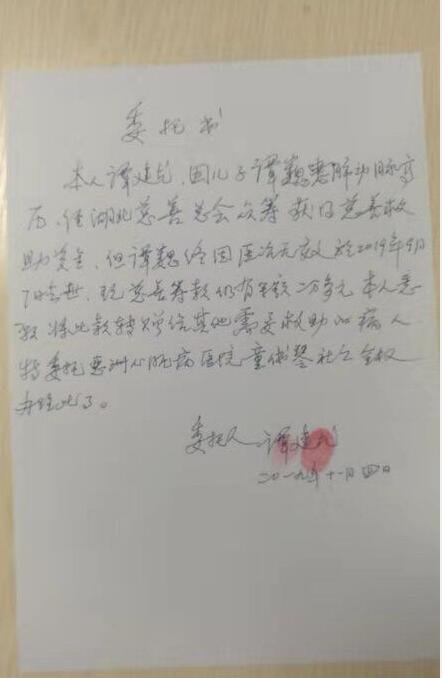 委托书
本人谭建龙，因儿子谭魏患肺动脉高
压，经湖北慈善总会众筹获得慈善救
助资金，但谭魏终因医治无效于2019年9月
7日去世，现慈善筹款仍有余额二万多元，本人悉
数将此款转赠给其他需要救助的病人
特委托惠州心肺病医院童俶琴社工全权
办理此事。
委托人：谭建龙
二〇一九年十一月四日